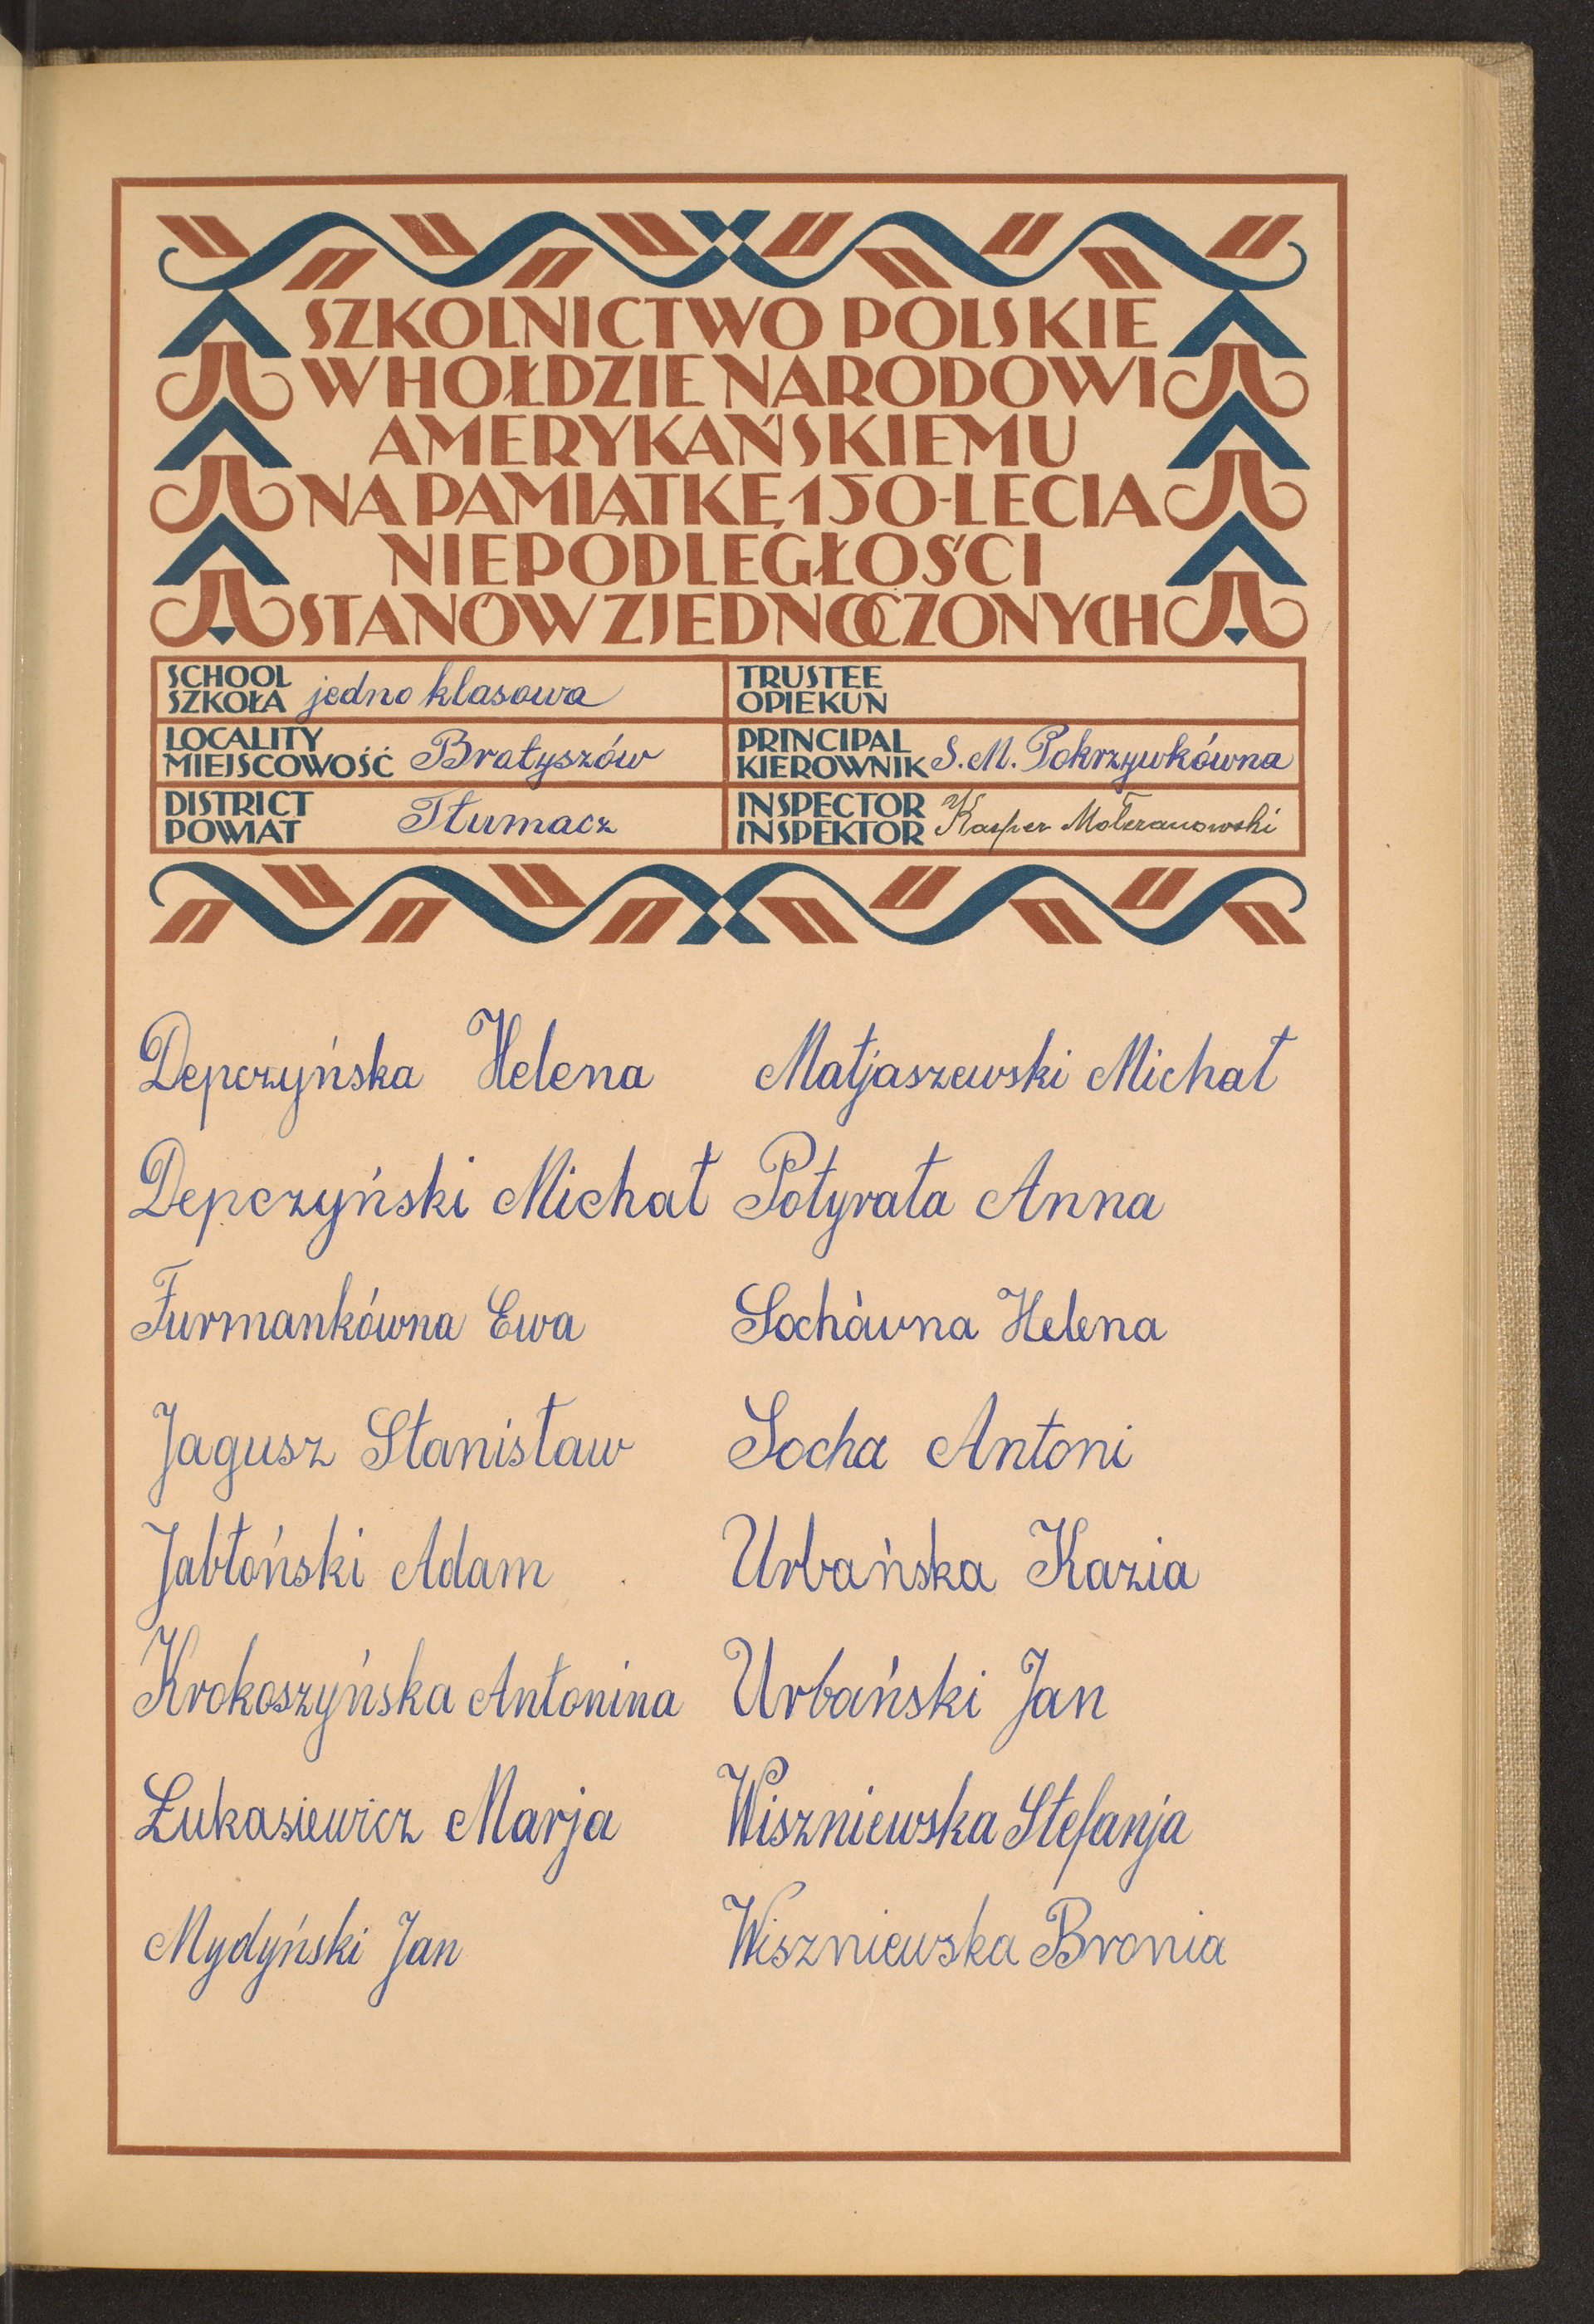 SZKOLNICTWO POLSKIE
W HOŁDZIE NARODOWI
AMERYKAŃSKIEMU
NA PAMIĄTKĘ 150-LECIA
NIEPODLEGŁOŚCI
STANÓW ZJEDNOCZONYCH
SCHOOL
SZKOŁA jedno klasowa
TRUSTEE
OPIEKUN
LOCALITY
MIEJSCOWOŚĆ Bratyszów
PRINCIPAL
KIEROWNIK S. M. Pokrzywkówna
DISTRICT
POWIAT Tłumacz
INSPECTOR
INSPEKTOR Kasper
Depczyńska Helena
Depczyński Michał
Furmankówna Ewa
Jagusz Stanisław
Jabłoński Adam
Krokoszyńska Antonina
Łukasiewicz Marja
Mydyński Jan
Matjaszewski Michał
Potyrała Anna
Sochówna Helena
Socha Antoni
Urbańska Kazia
Urbański Jan
Wiszniewska Stefanja
Wiszniewska Bronia